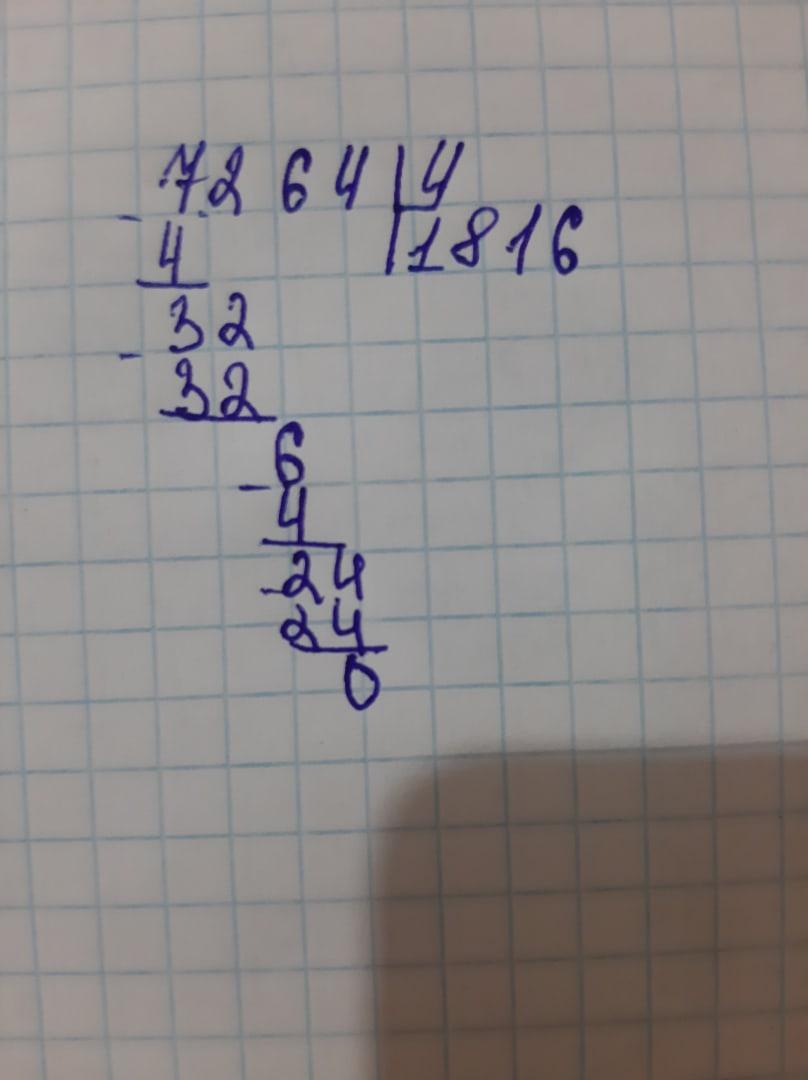 7264|4
- 4 |1816
32
- 32
- 6
4
- 24
24
0